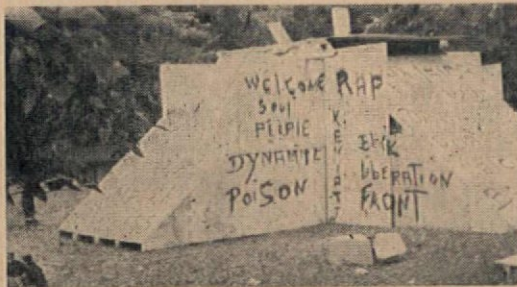 WELCOME
SOUL
PEOPLE
DYNAMITE
POISON
RAP
LIBERATION
FRONT